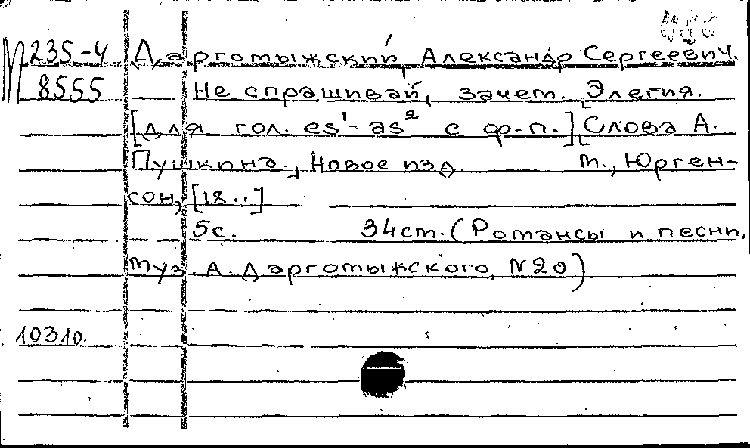 М 235-4 Даргомыжский, Александр Сергеевич.
8555 Не спрашивай, зачем. Элегия.
[для гол. es¹-as² с ф.-п.] Слова А.
Пушкина, Новое изд. М., Юрген-
сон, [18..]
5с. 34см. (Романсы и песни,
муз. А. Даргомыжского, №20)
10310.